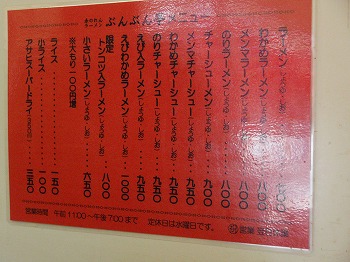 あやりん
ラーメン ぶんぶん亭メニュー
ラーメン(しょうゆ・しお)・・・・七〇〇
わかめラーメン(しょうゆ・しお)・・八〇〇
メンマラーメン(しょうゆ・しお)・・八〇〇
のりラーメン(しょうゆ・しお)・・・八〇〇
チャーシューメン(しょうゆ・しお)・九〇〇
メンマチャーシュー(しょうゆ・しお)・九五〇
わかめチャーシュー(しょうゆ・しお)・九五〇
のりチャーシュー(しょうゆ・しお)・・九五〇
えび入ラーメン(しょうゆ・しお)・・九五〇
えびわかめラーメン(しょうゆ・しお)・一〇〇〇
限定
トンコツ入ラーメン(しょうゆ・しお)・八〇〇
小さいラーメン(しょうゆ・しお)・・六五〇
※大もり一〇〇円増
ライス・・・・・・・・・一五〇
小ライス・・・・・・・・一〇〇
アサヒスーパードライ・・・・三五〇
営業時間 午前11:00〜午後7:00まで 定休日は水曜日です。 営業